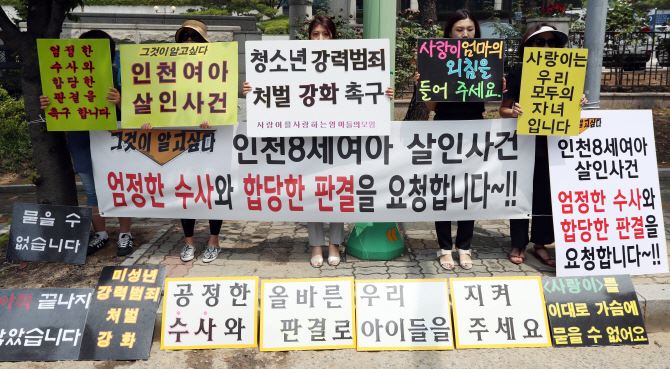 엄정한
수사와
합당한
판결을
촉구 합니다
그것이 알고싶다
인천여아
살인사건
청소년 강력범죄
처벌 강화 촉구
사랑이를사랑하는 엄마들의모임
사랑이엄마의
외침을
들어 주세요
사랑이는
우리
모두의
자녀
입니다
그것이 알고싶다
인천8세여아 살인사건
엄정한 수사와 합당한 판결을 요청합니다~!!
알고싶다
인천8세여아
살인사건
엄정한 수사와
합당한 판결을
요청합니다~!!
묻을 수
없습니다
끝나지
않았습니다
미성년
강력범죄
처벌
강화
공정한
수사와
올바른
판결로
우리
아이들을
지켜
주세요
<사랑이>를
이대로 가슴에
묻을 수 없어요